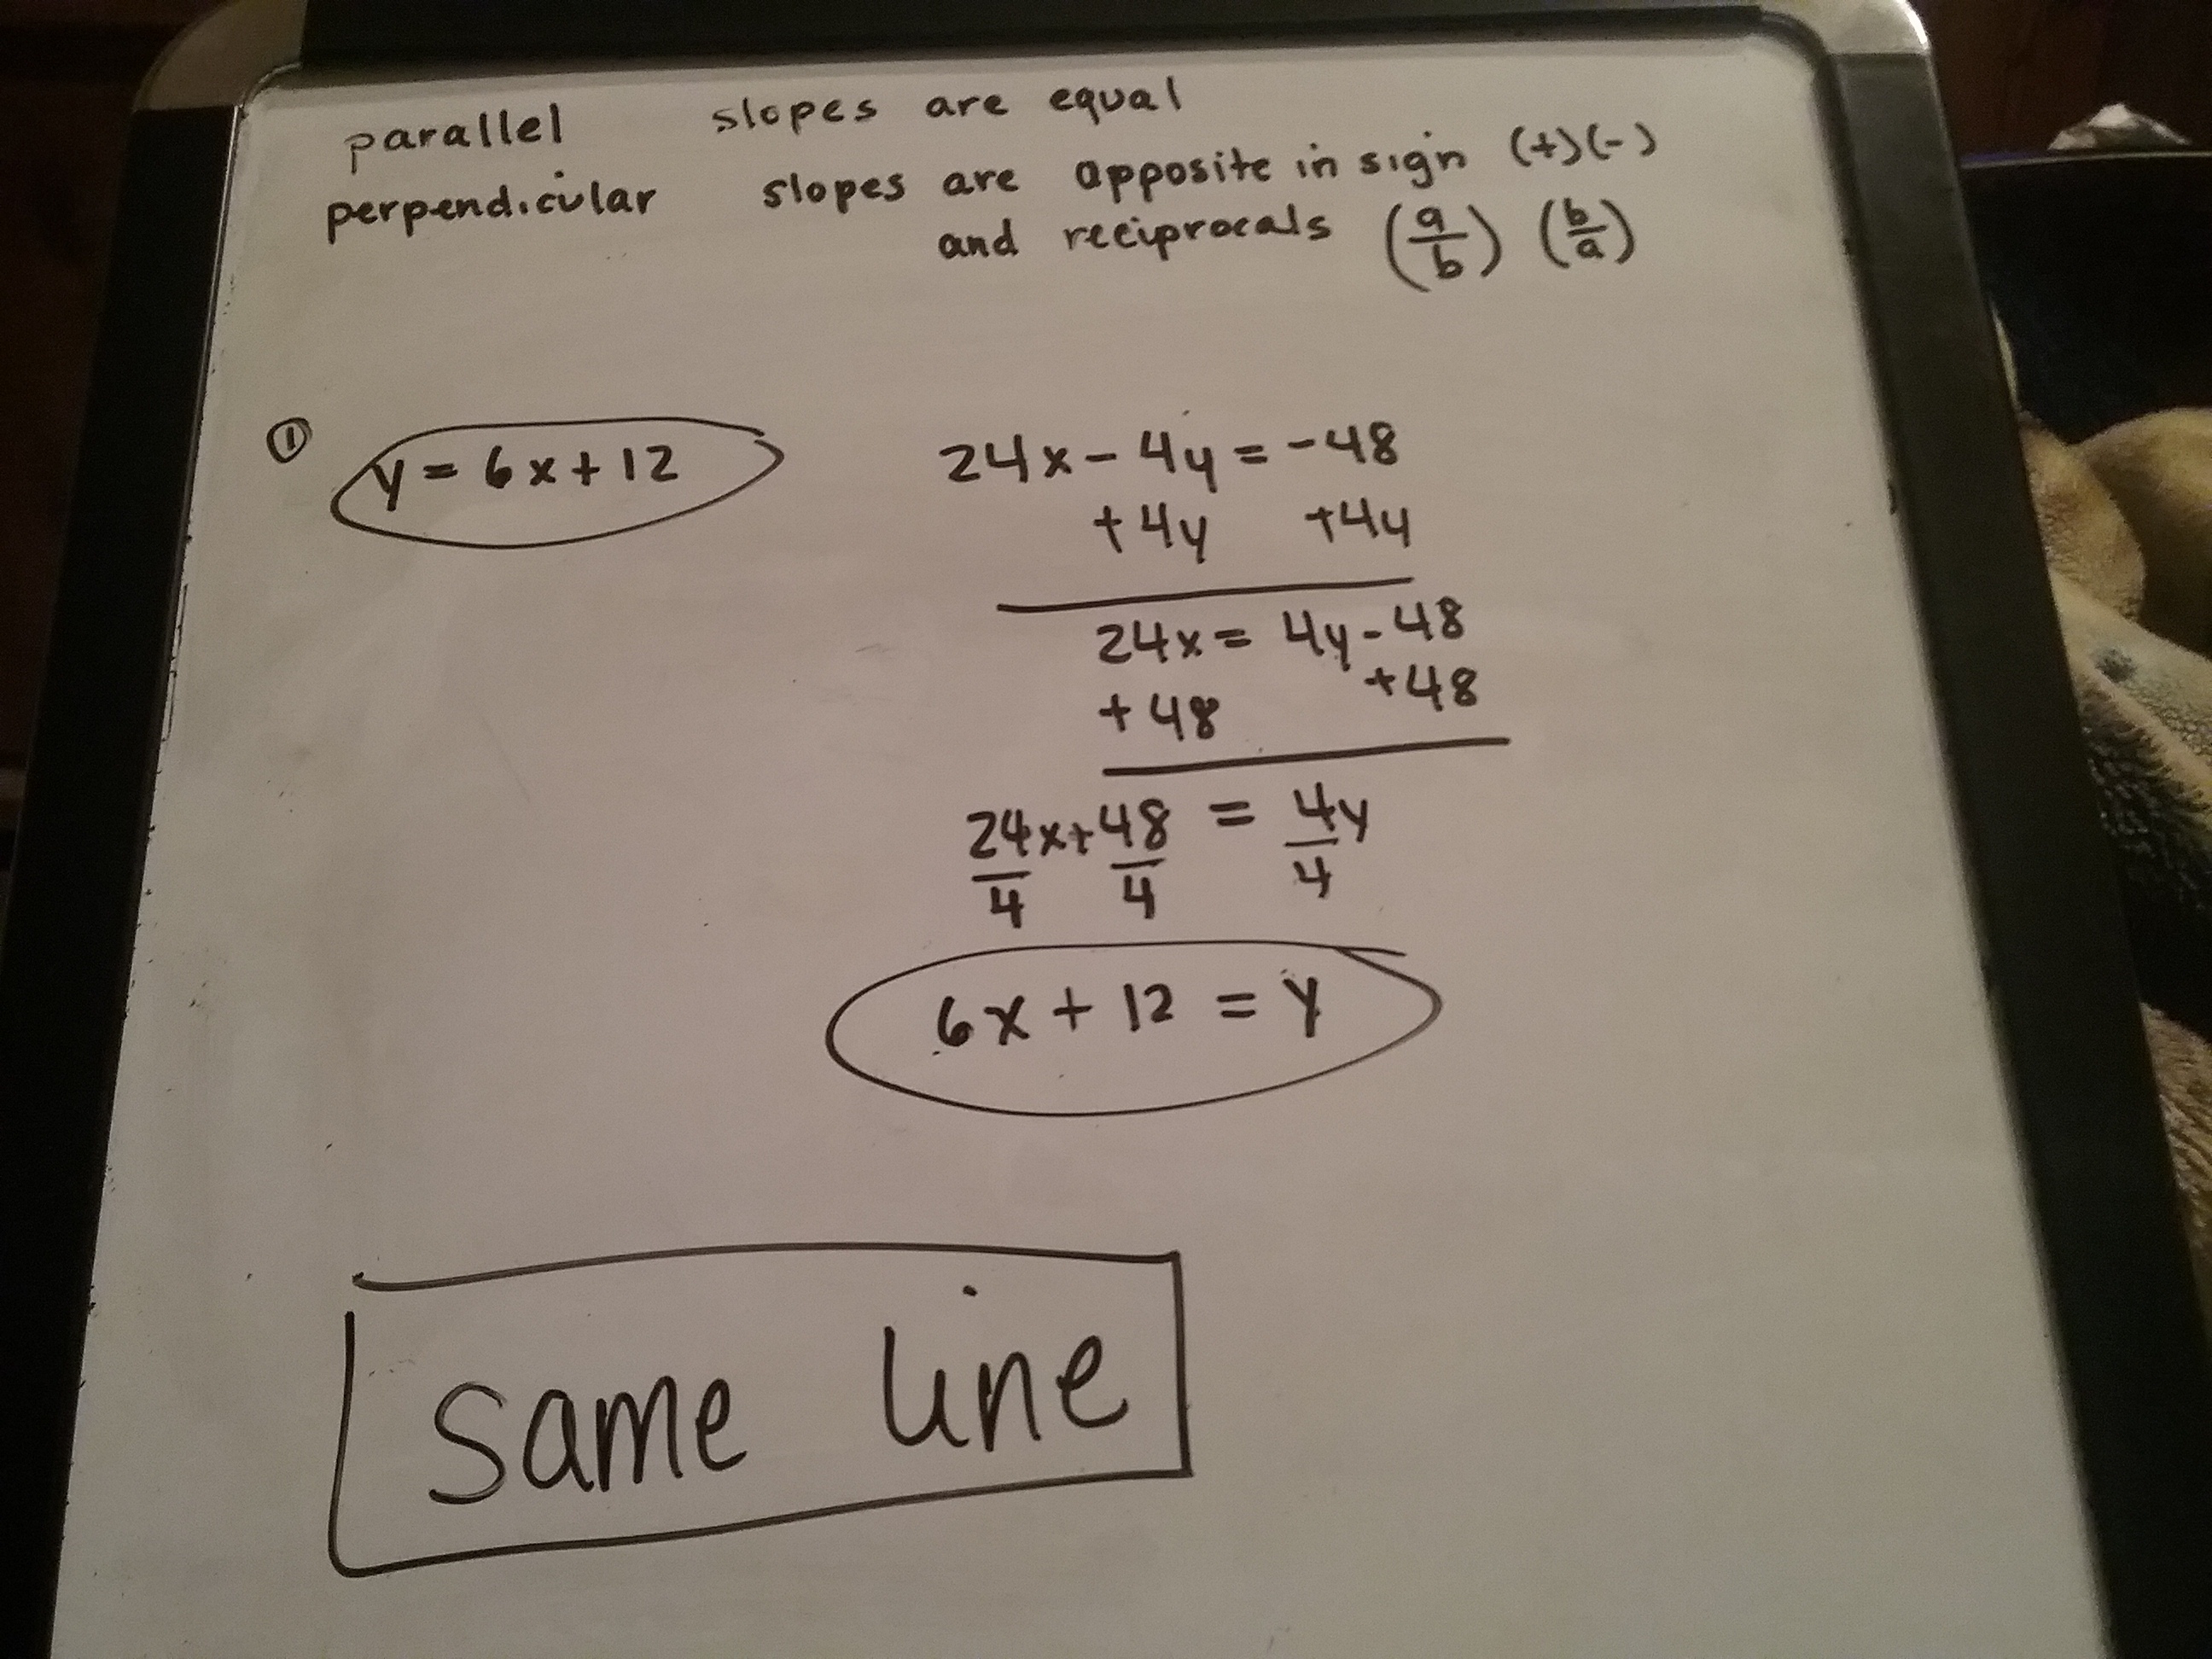 parallel slopes are equal
perpendicular slopes are opposite in sign (+)(-)
and reciprocals (a/b) (b/a)
① y = 6x + 12
24x - 4y = -48
+4y +4y
24x = 4y - 48
+48 +48
24x/4 + 48/4 = 4y/4
6x + 12 = y
same line